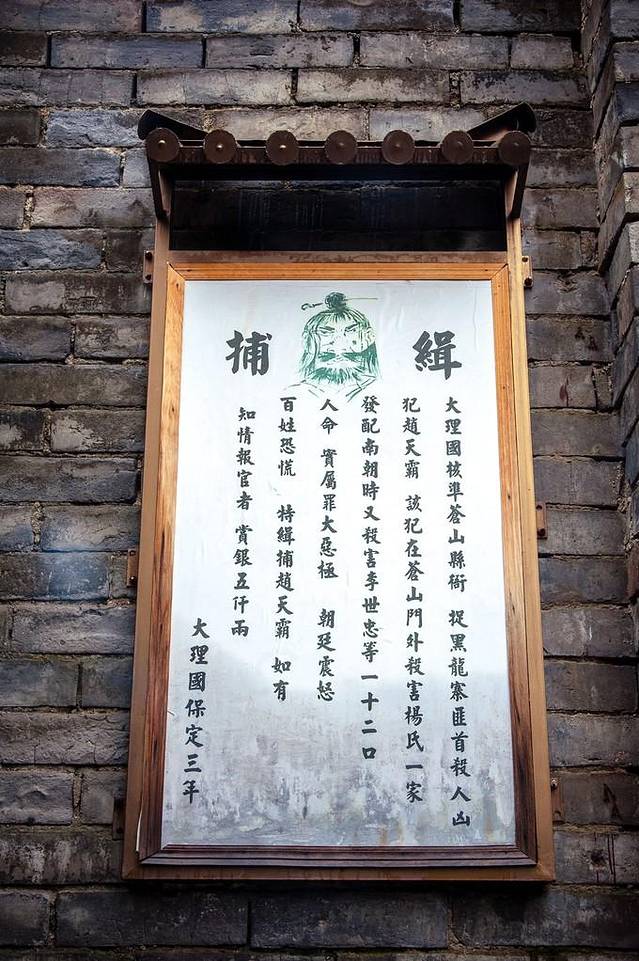 緝捕
大理國核準蒼山縣衙 捉黑龍寨匪首殺人凶
犯趙天霸 該犯在蒼山門外殺害楊氏一家
發配南朝時又殺害李世忠等一十二口
人命 實屬罪大惡極 朝廷震怒
百姓恐慌 特緝捕趙天霸 如有
知情報官者 賞銀五仟兩
大理國保定三年